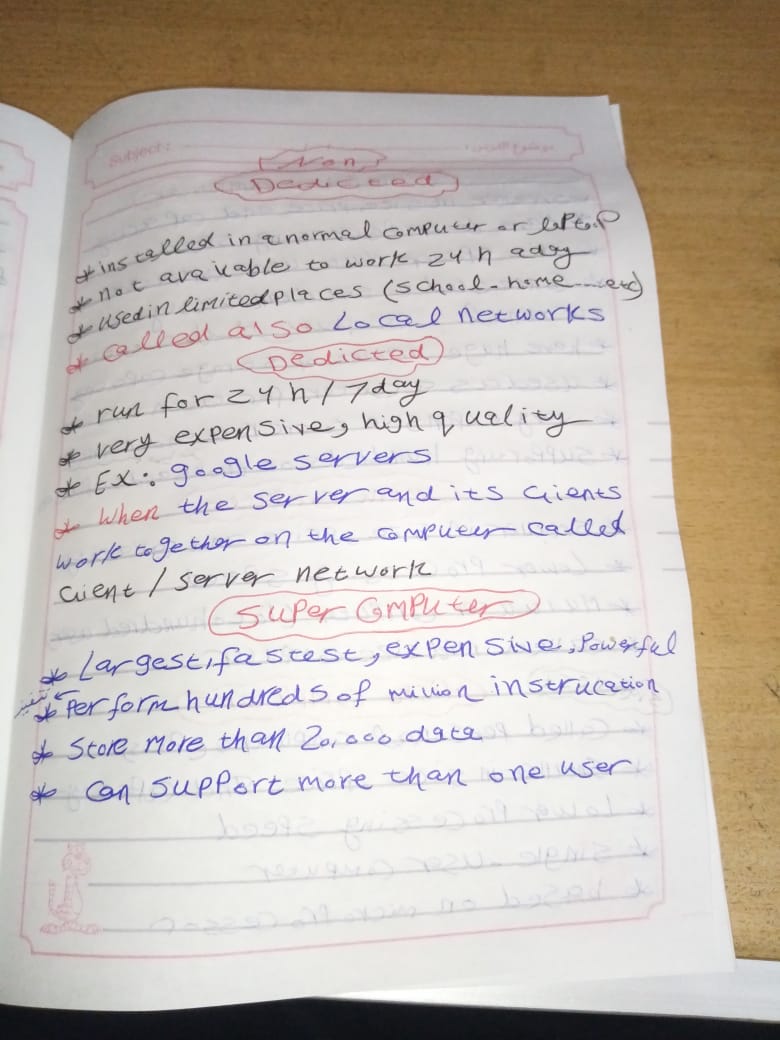 Subject :
موضوع الدرس :
Non
Dedicted
* installed in a normal computer or laptop
* not available to work 24 h aday
* used in limited places (school - home ---- etc)
* called also Local networks
Dedicted
* run for 24 h / 7 day
* very expensive, high quality
* Ex: google servers
* When the server and its clients
work together on the computer called
client / server network
Super Computer
* Largest, fastest, expensive, Powerful
* Perform hundreds of million instrucation
* Store more than 20,000 data
* Can support more than one user